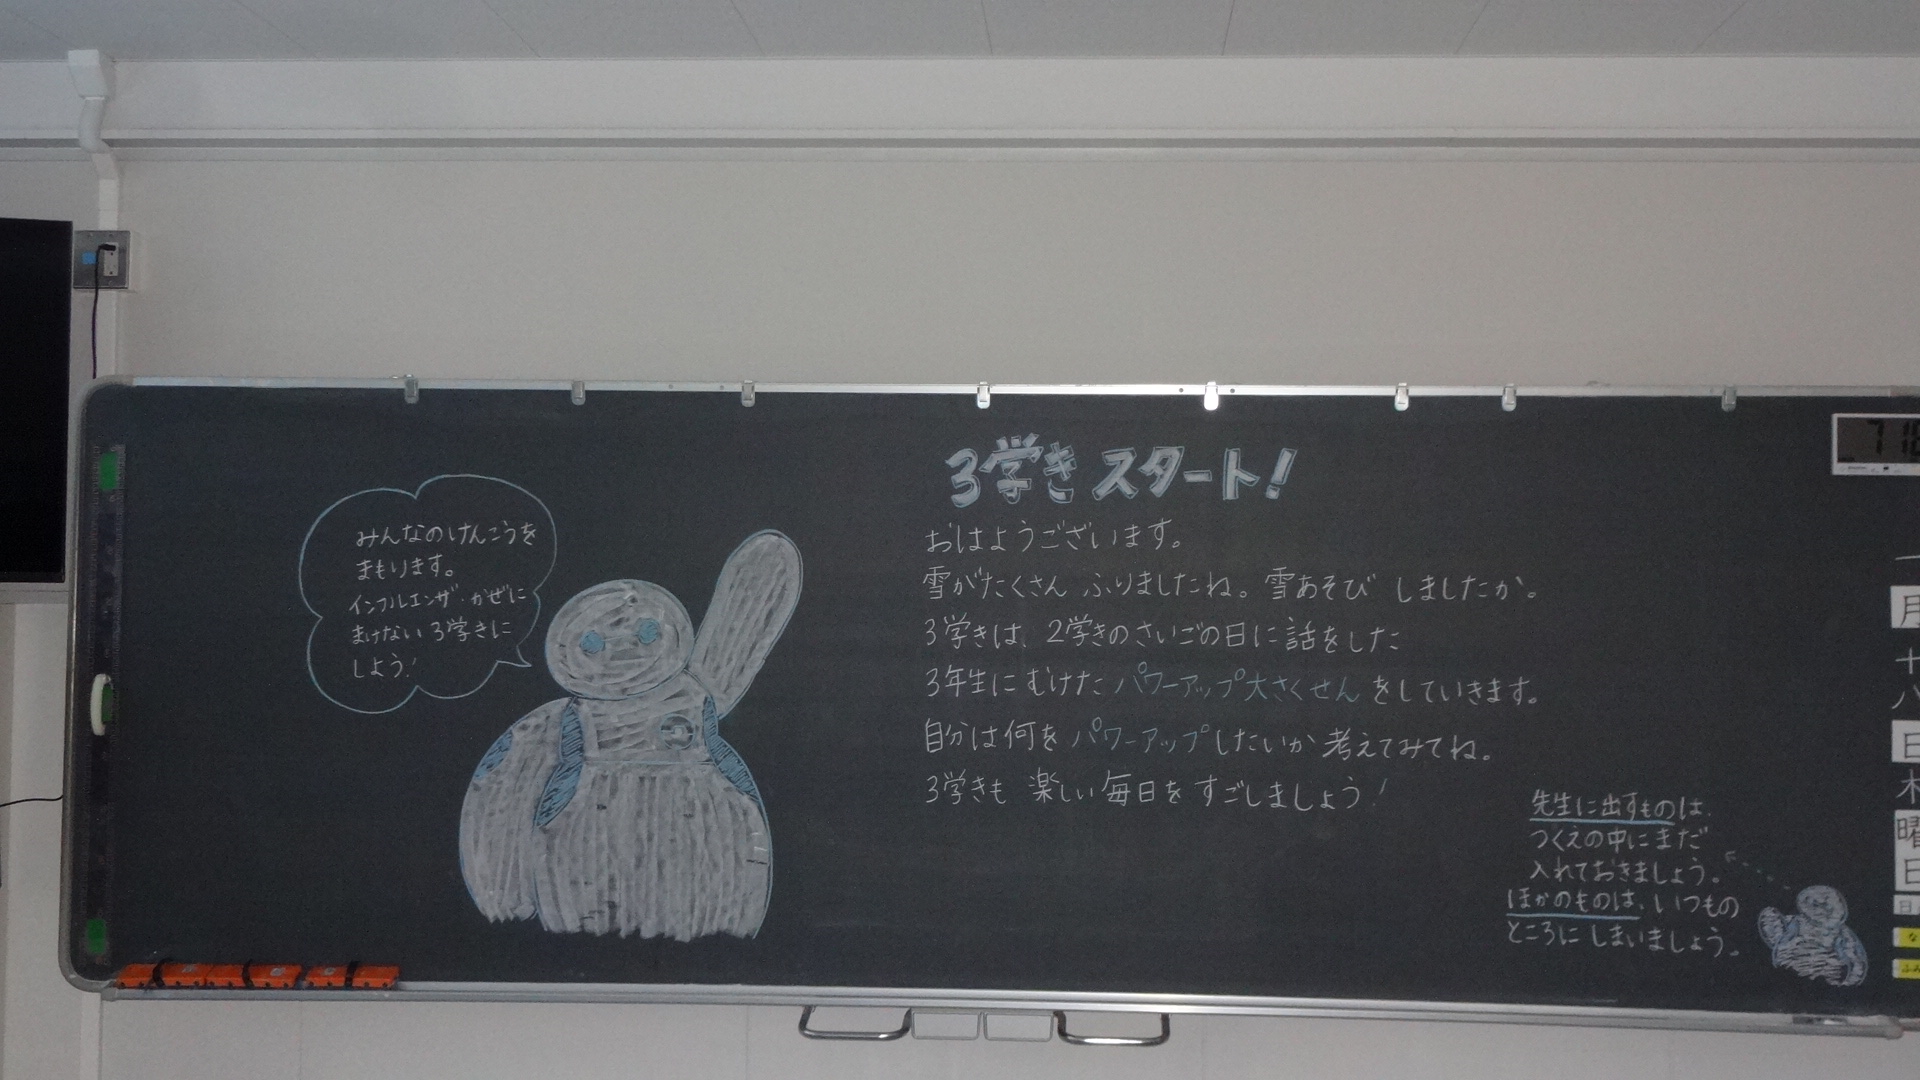 みんなのけんこうを
まもります。
インフルエンザ・かぜに
まけない3学きに
しよう!
3学きスタート!
おはようございます。
雪がたくさん ふりましたね。雪あそび しましたか。
3学きは、2学きのさいごの日に話をした
3年生にむけた パワーアップ大さくせん をしていきます。
自分は何を パワーアップしたいか 考えてみてね。
3学きも 楽しい毎日を すごしましょう!
先生に出すものは、
つくえの中にまだ
入れておきましょう。
ほかのものは、いつもの
ところに しまいましょう。
月
十
八
日
木
曜
日